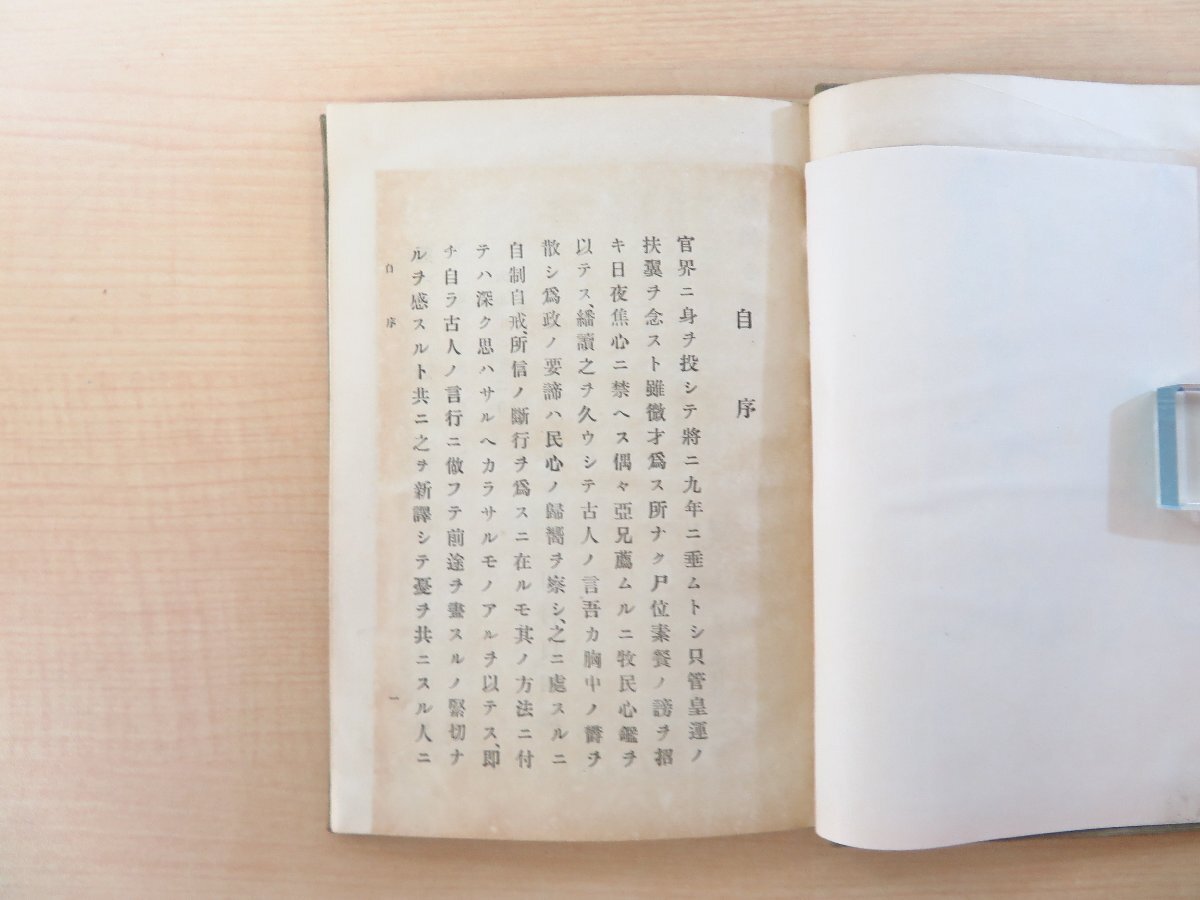 自序
官界ニ身ヲ投シテ將ニ九年ニ垂ムトシ只管皇運ノ
扶翼ヲ念スト雖微才爲ス所ナク尸位素餐ノ謗ヲ招
キ日夜焦心ニ禁ヘス偶々亞兄薦ムルニ牧民心鑑ヲ
以テス、繙讀之ヲ久ウシテ古人ノ言吾カ胸中ノ欝ヲ
散シ爲政ノ要諦ハ民心ノ歸嚮ヲ察シ、之ニ處スルニ
自制自戒、所信ノ斷行ヲ爲スニ在ルモ其ノ方法ニ付
テハ深ク思ハサルヘカラサルモノアルヲ以テス、卽
チ自ラ古人ノ言行ニ倣フテ前途ヲ畫スルノ緊切ナ
ルヲ感スルト共ニ之ヲ新譯シテ憂ヲ共ニスル人ニ
自序
一